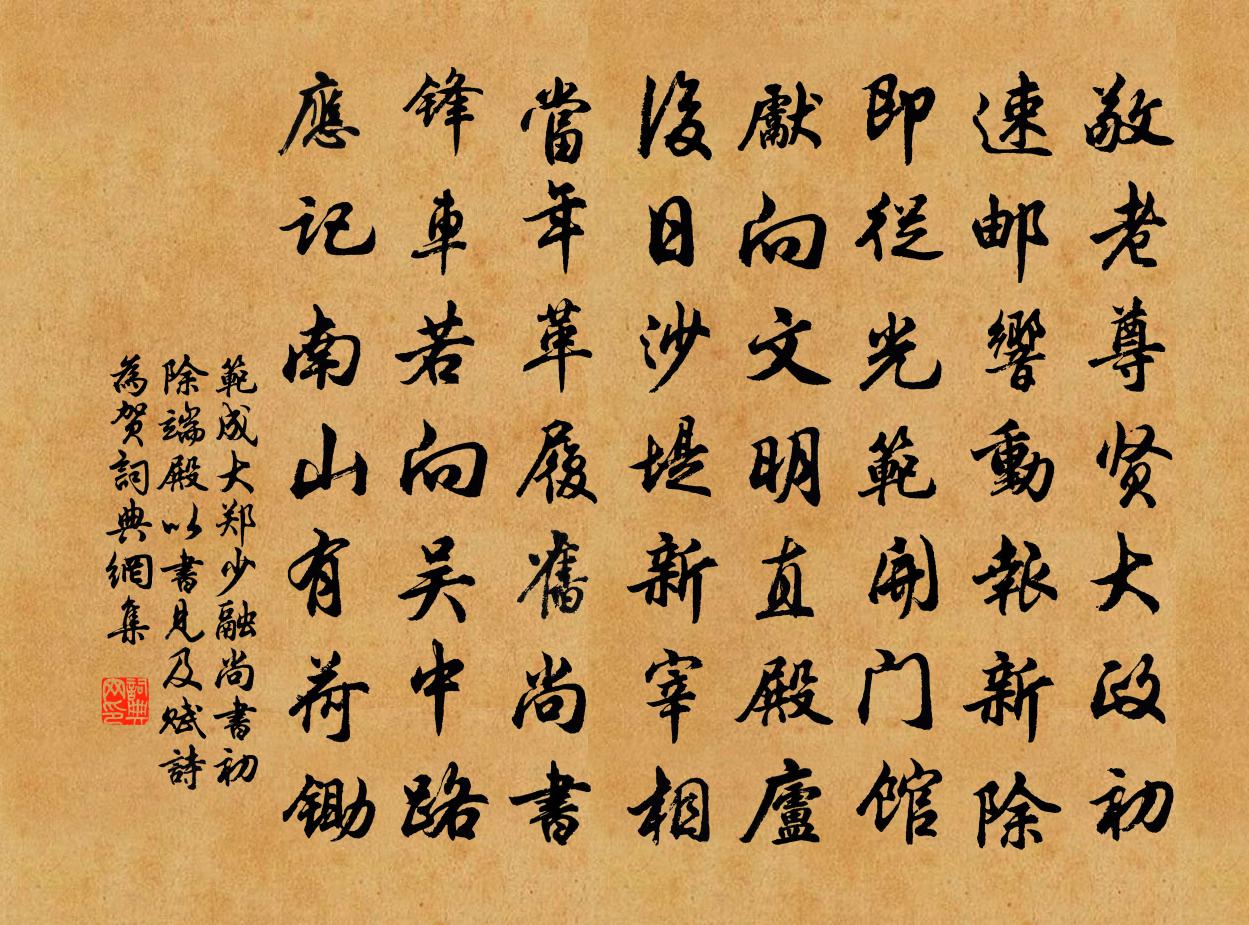 敬老尊贤大政初
速邮響動報新除
即從光範開门馆
獻向文明直殿廬
後日沙堤新宰相
當年革履舊尚書
锋車若向吴中路
應记南山有荷锄
範成大郑少融尚書初
除端殿以書見及赋詩
為贺詞典網集
詞典
网印